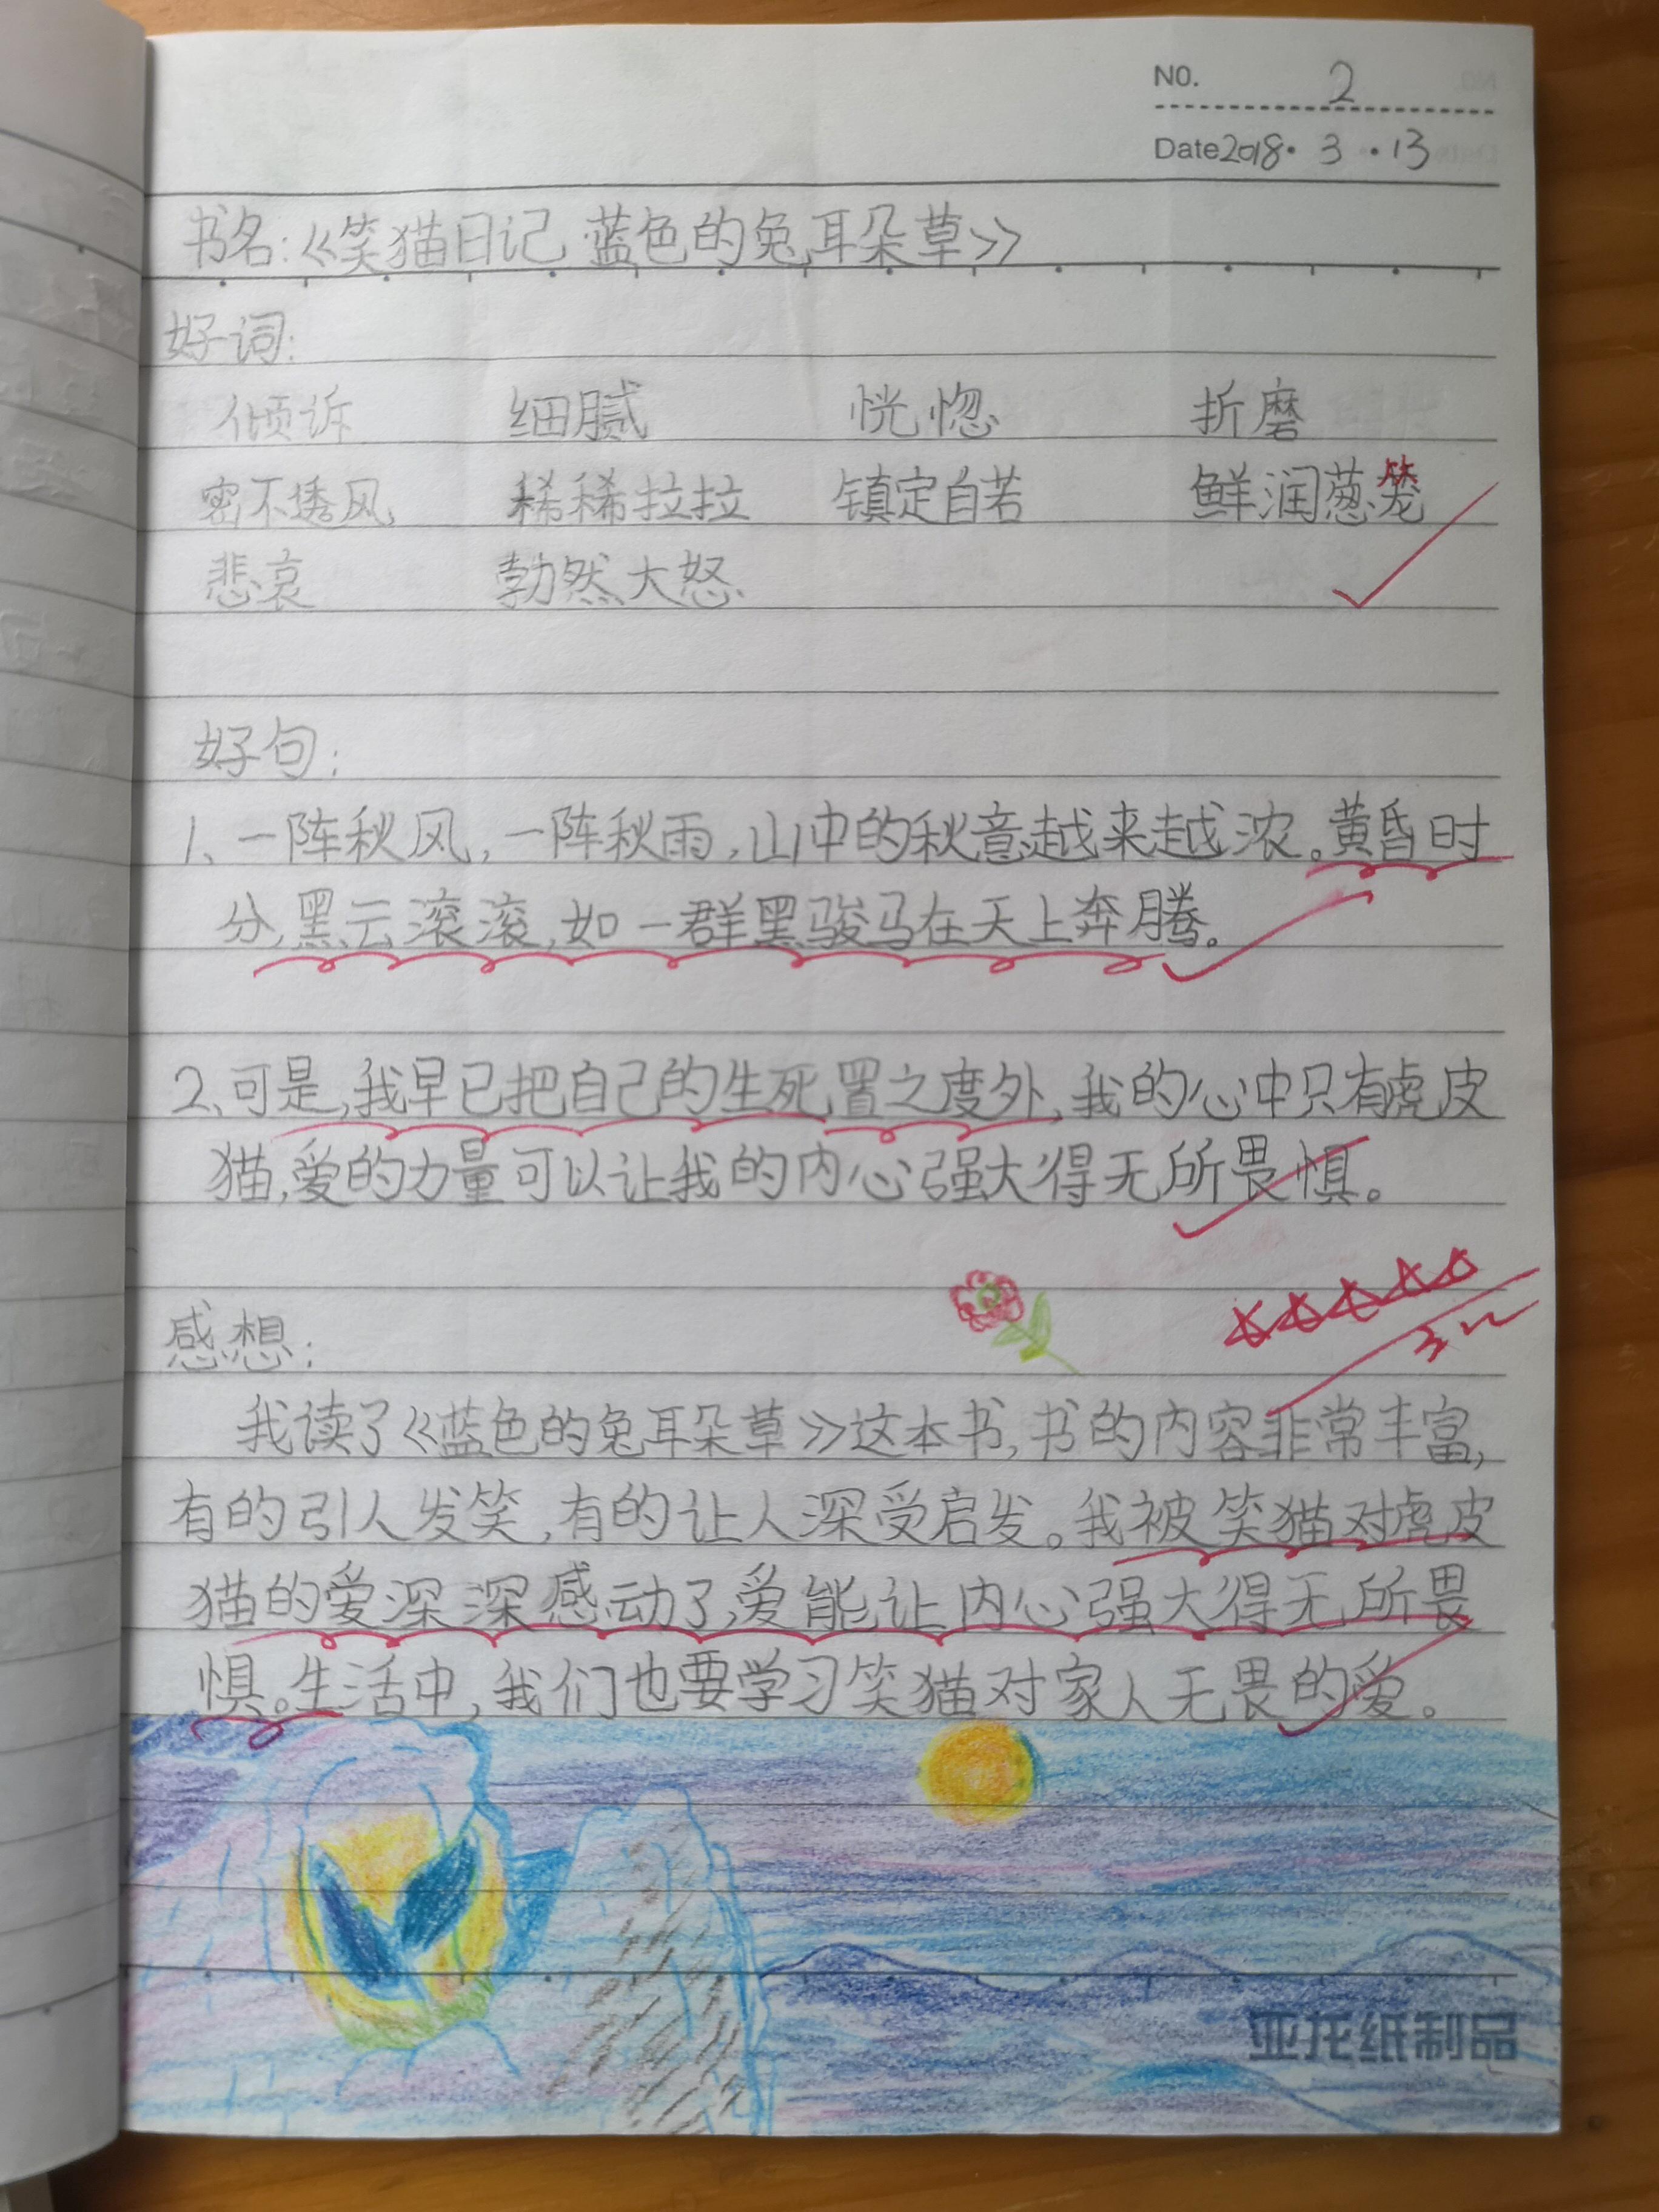 NO. 2
Date 2018·3·13
书名:《笑猫日记 蓝色的兔耳朵草》
好词:
倾诉 细腻 恍惚 折磨
密不透风 稀稀拉拉 镇定自若 鲜润葱笼
悲哀 勃然大怒
好句:
1、一阵秋风,一阵秋雨,山中的秋意越来越浓。黄昏时
分,黑云滚滚,如一群黑骏马在天上奔腾。
2、可是,我早已把自己的生死置之度外,我的心中只有虎皮
猫,爱的力量可以让我的内心强大得无所畏惧。
感想:
我读了《蓝色的兔耳朵草》这本书,书的内容非常丰富,
有的引人发笑,有的让人深受启发。我被笑猫对虎皮
猫的爱深深感动了,爱能让内心强大得无所畏
惧。生活中,我们也要学习笑猫对家人无畏的爱。
亚龙纸制品